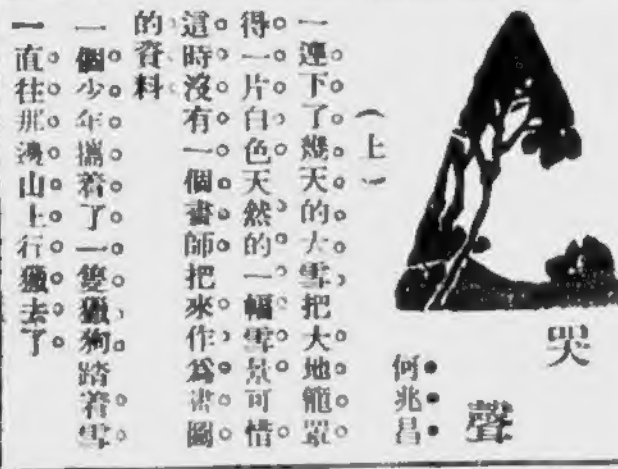 哭聲
何兆昌
(上)
一連下了幾天的大雪把大地籠罩
得一片白色天然的一幅雪景可惜
這時沒有一個畫師把來作爲畫圖
的資料
一個少年攜着了一隻獵狗踏着雪
一直往那山上行獵去了